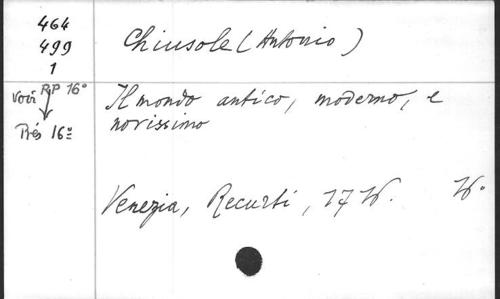 464
499
1
Chiusole (Antonio)
voir RP 16°
Rés 16°
Il mondo antico, moderno, e
novissimo
Venezia, Recurti, 17